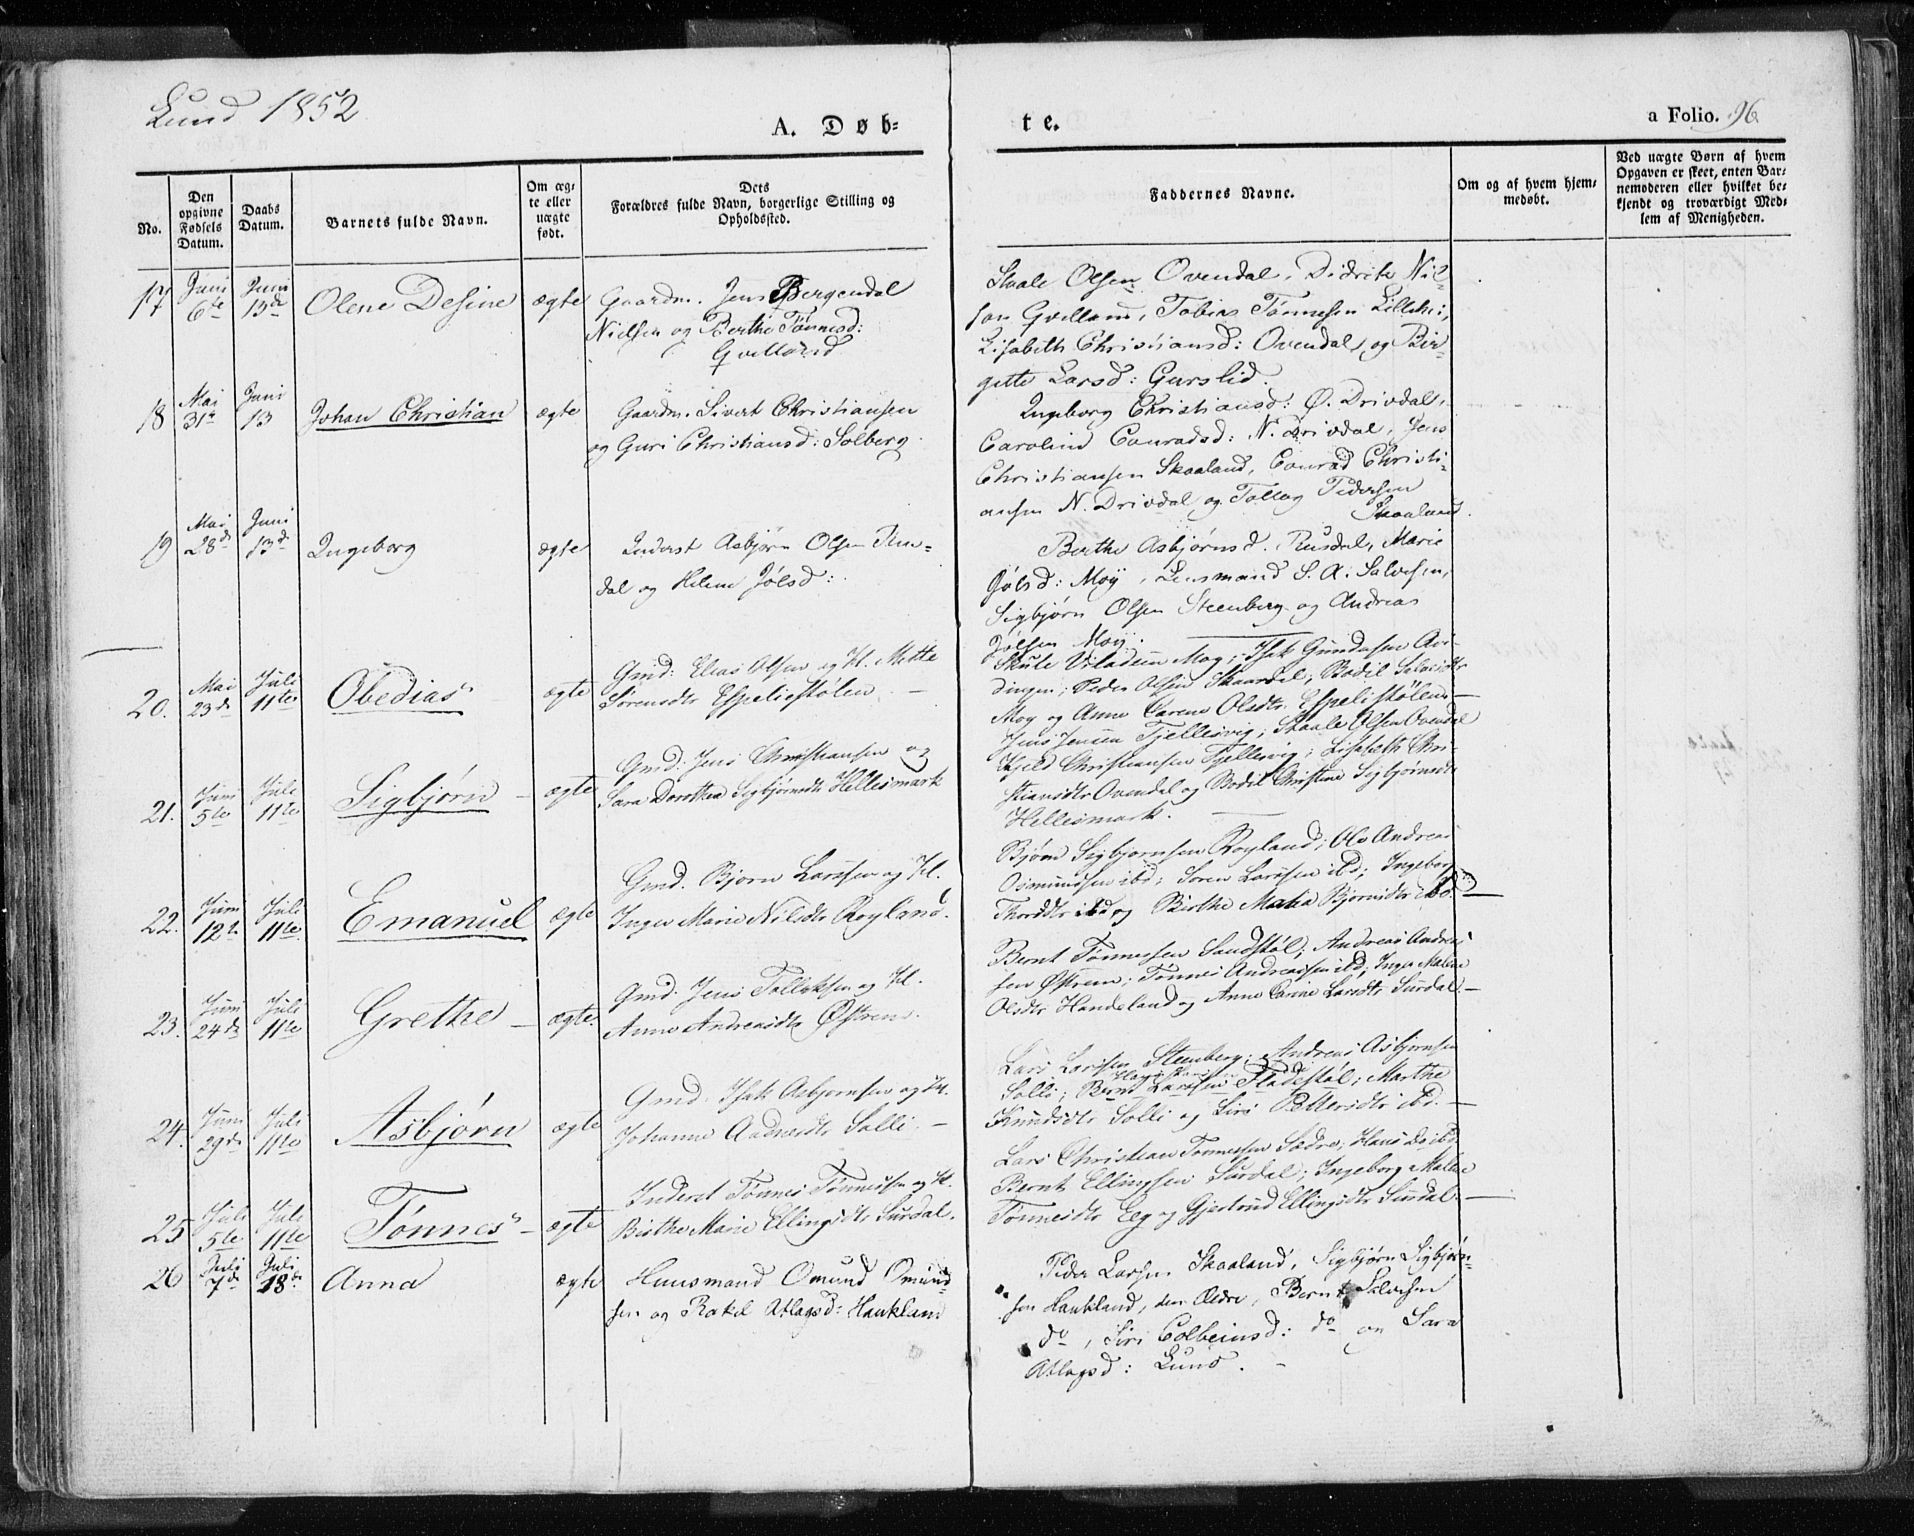 Lund 1852
A. Døb=
te.
a Folio. 96
No.
Den opgivne Fødsels Datum.
Daabs Datum.
Barnets fulde Navn.
Om æg= te eller uægte født.
Dets
Forældres fulde Navn, borgerlige Stilling og
Opholdssted.
Faddernes Navne.
Om og af hvem hjem=
medøbt.
Ved uægte Børn af hvem
Opgaven er skeet, enten Bar=
nemoderen eller hvilket be=
kjendt og troværdigt Med=
lem af Menigheden.
17 Juni 6te Juni 13de Olene Desine ægte
Gaardm. Jens Bergendal
Nielsen og Berthe Tønnesd:
Qvelland
Staale Olsen Ovendal, Didrik Niel=
sen Qvelland, Tobias Tønnesen
Lisabeth Christiansd: Ovendal og Bir=
gitte Larsd: Gurslid.
18 Mai 31te Juni 13 Johan Christian ægte
Gaardm. Sivert Christiansen
og Guri Christiansd: Solberg.
Ingeborg Christiansd: Ø. Drivdal,
Caroline Conradsd: N. Drivdal, Jens
Christiansen Skaaland, Conrad Christi=
ansen N. Drivdal og Tollag Pedersen
Skaaland.
19 Mai 28de Juni 13de Ingeborg ægte
Inderst Asbjørn Olsen
dal og Helene Jølsd:
Berthe Asbjørnsd. Rusdal, Marie
Jølsd: Moy, Lensmand S. A. Salvesen,
Sigbjørn Olsen Steenberg og Andreas
Jølsen Moy.
20. Mai 23de Juli 11te Obedias ægte
Gmd: Elias Olsen og H. Mette
Sørensdtr Espeliestølen.
Moy; Isak Gundersen
Peder Olsen Skaardal; Bodil
Moy og Anne Carene Olsdtr. Espelistølen —
21. Juni 5te Juli 11te Sigbjørn — ægte
Gmd: Jens Christiansen og
Sara Dorthea Sigbjørnsdtr Hellesmark
Jens Jensen Fjellesvig; Staale Olsen Ovendal
Kjeld Christiansen Fjellesvig; Lisabeth Chri=
stiansdtr Ovendal og Bodil Christine Sigbjørnsdtr
Hellesmark.
22. Juni 12te Juli 11te Emanuel ægte
Gmd. Bjørn Larssen og H.
Inger Marie Nilsdtr Royland.
Bjørn Sigbjørnsen Royland; Ole Andreas
Osmundsen ibd; Søren Larssen ibd; Ingeborg
Thordsdtr ibd og Birthe Malia Bjørnsdtr ibd. —
23. Juni 24de Juli 11te Grethe — ægte.
Gmd. Jens Tollaksen og H.
Anne Andreasdtr Østrem.
Bernt Tønnessen Sandstøl; Andreas Andrea=
sen Østrem; Tønnes Andreassen ibd; Inger Malene
Olsdtr Handeland og Anne Carine Larsdtr Surdal. —
24. Juni 29de Juli 11te Asbjørn ægte
Gmd. Isak Asbjørnsen og H.
Johanne Aadnesdtr Solli. —
Lars Larssen Steenberg; Andreas Asbjørnsen
Solli; Bernt Larssen Fladestøl; Marthe
Knudsdtr Solli og Siri Pettersdtr ibd. —
25 Juli 5te Juli 11te Tønnes — ægte
Inderst Tønnes Tønnessen og H.
Birthe Marie Ellingsdtr Surdal.
Lars Christian Tønnessen Sædre; Hans do ibd.
Bernt Ellingsen Surdal; Ingeborg Malene
Tønnesdtr Eeg og Gjertrud Ellingsdtr Surdal. —
26 Juli 7de Juli 18de Anna ægte
Huusmand Omund Omund=
sen og Rakel Atlagsd: Haukland
Peder Larsen Skaaland, Sigbjørn Sigbjørn=
sen Haukland, den Ældre, Bernt Salvesen
do, Siri Colbeinsd: do og Sara
Atlagsd: Lund. —